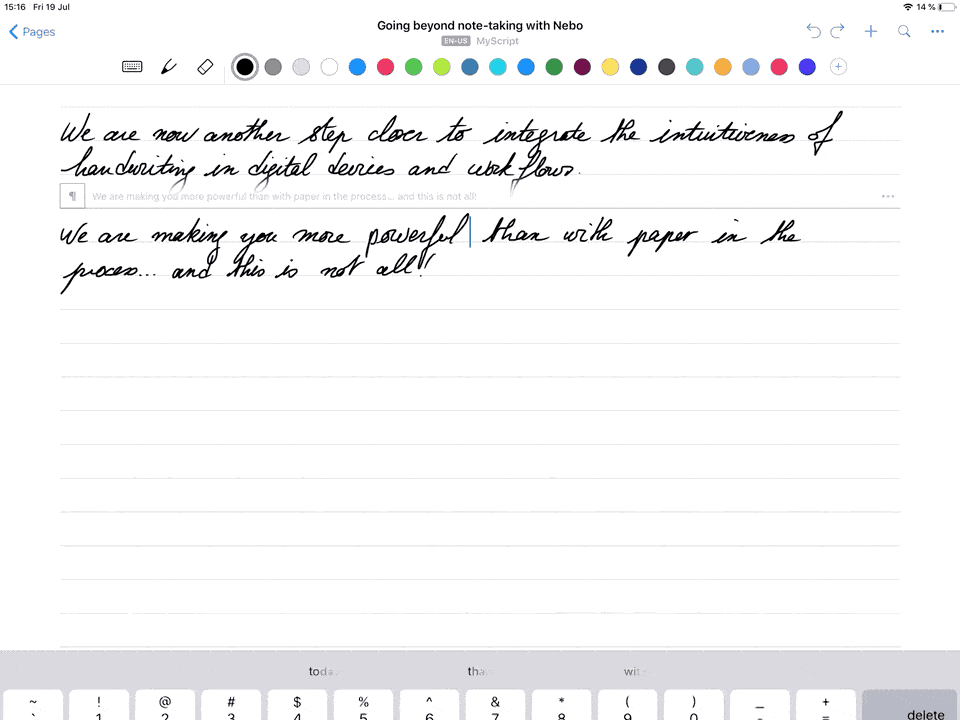 15:16 Fri 19 Jul 14 %
Going beyond note-taking with Nebo
Pages
EN-US MyScript
We are now another step closer to integrate the intuitiveness of
handwriting in digital devices and workflows.
¶ We are making you more powerful than with paper in the process... and this is not all!
We are making you more powerful than with paper in the
process... and this is not all!
~ ! @ # $ % ^ & * ( ) _ +
` 1 2 3 4 5 6 7 8 9 0 - = delete